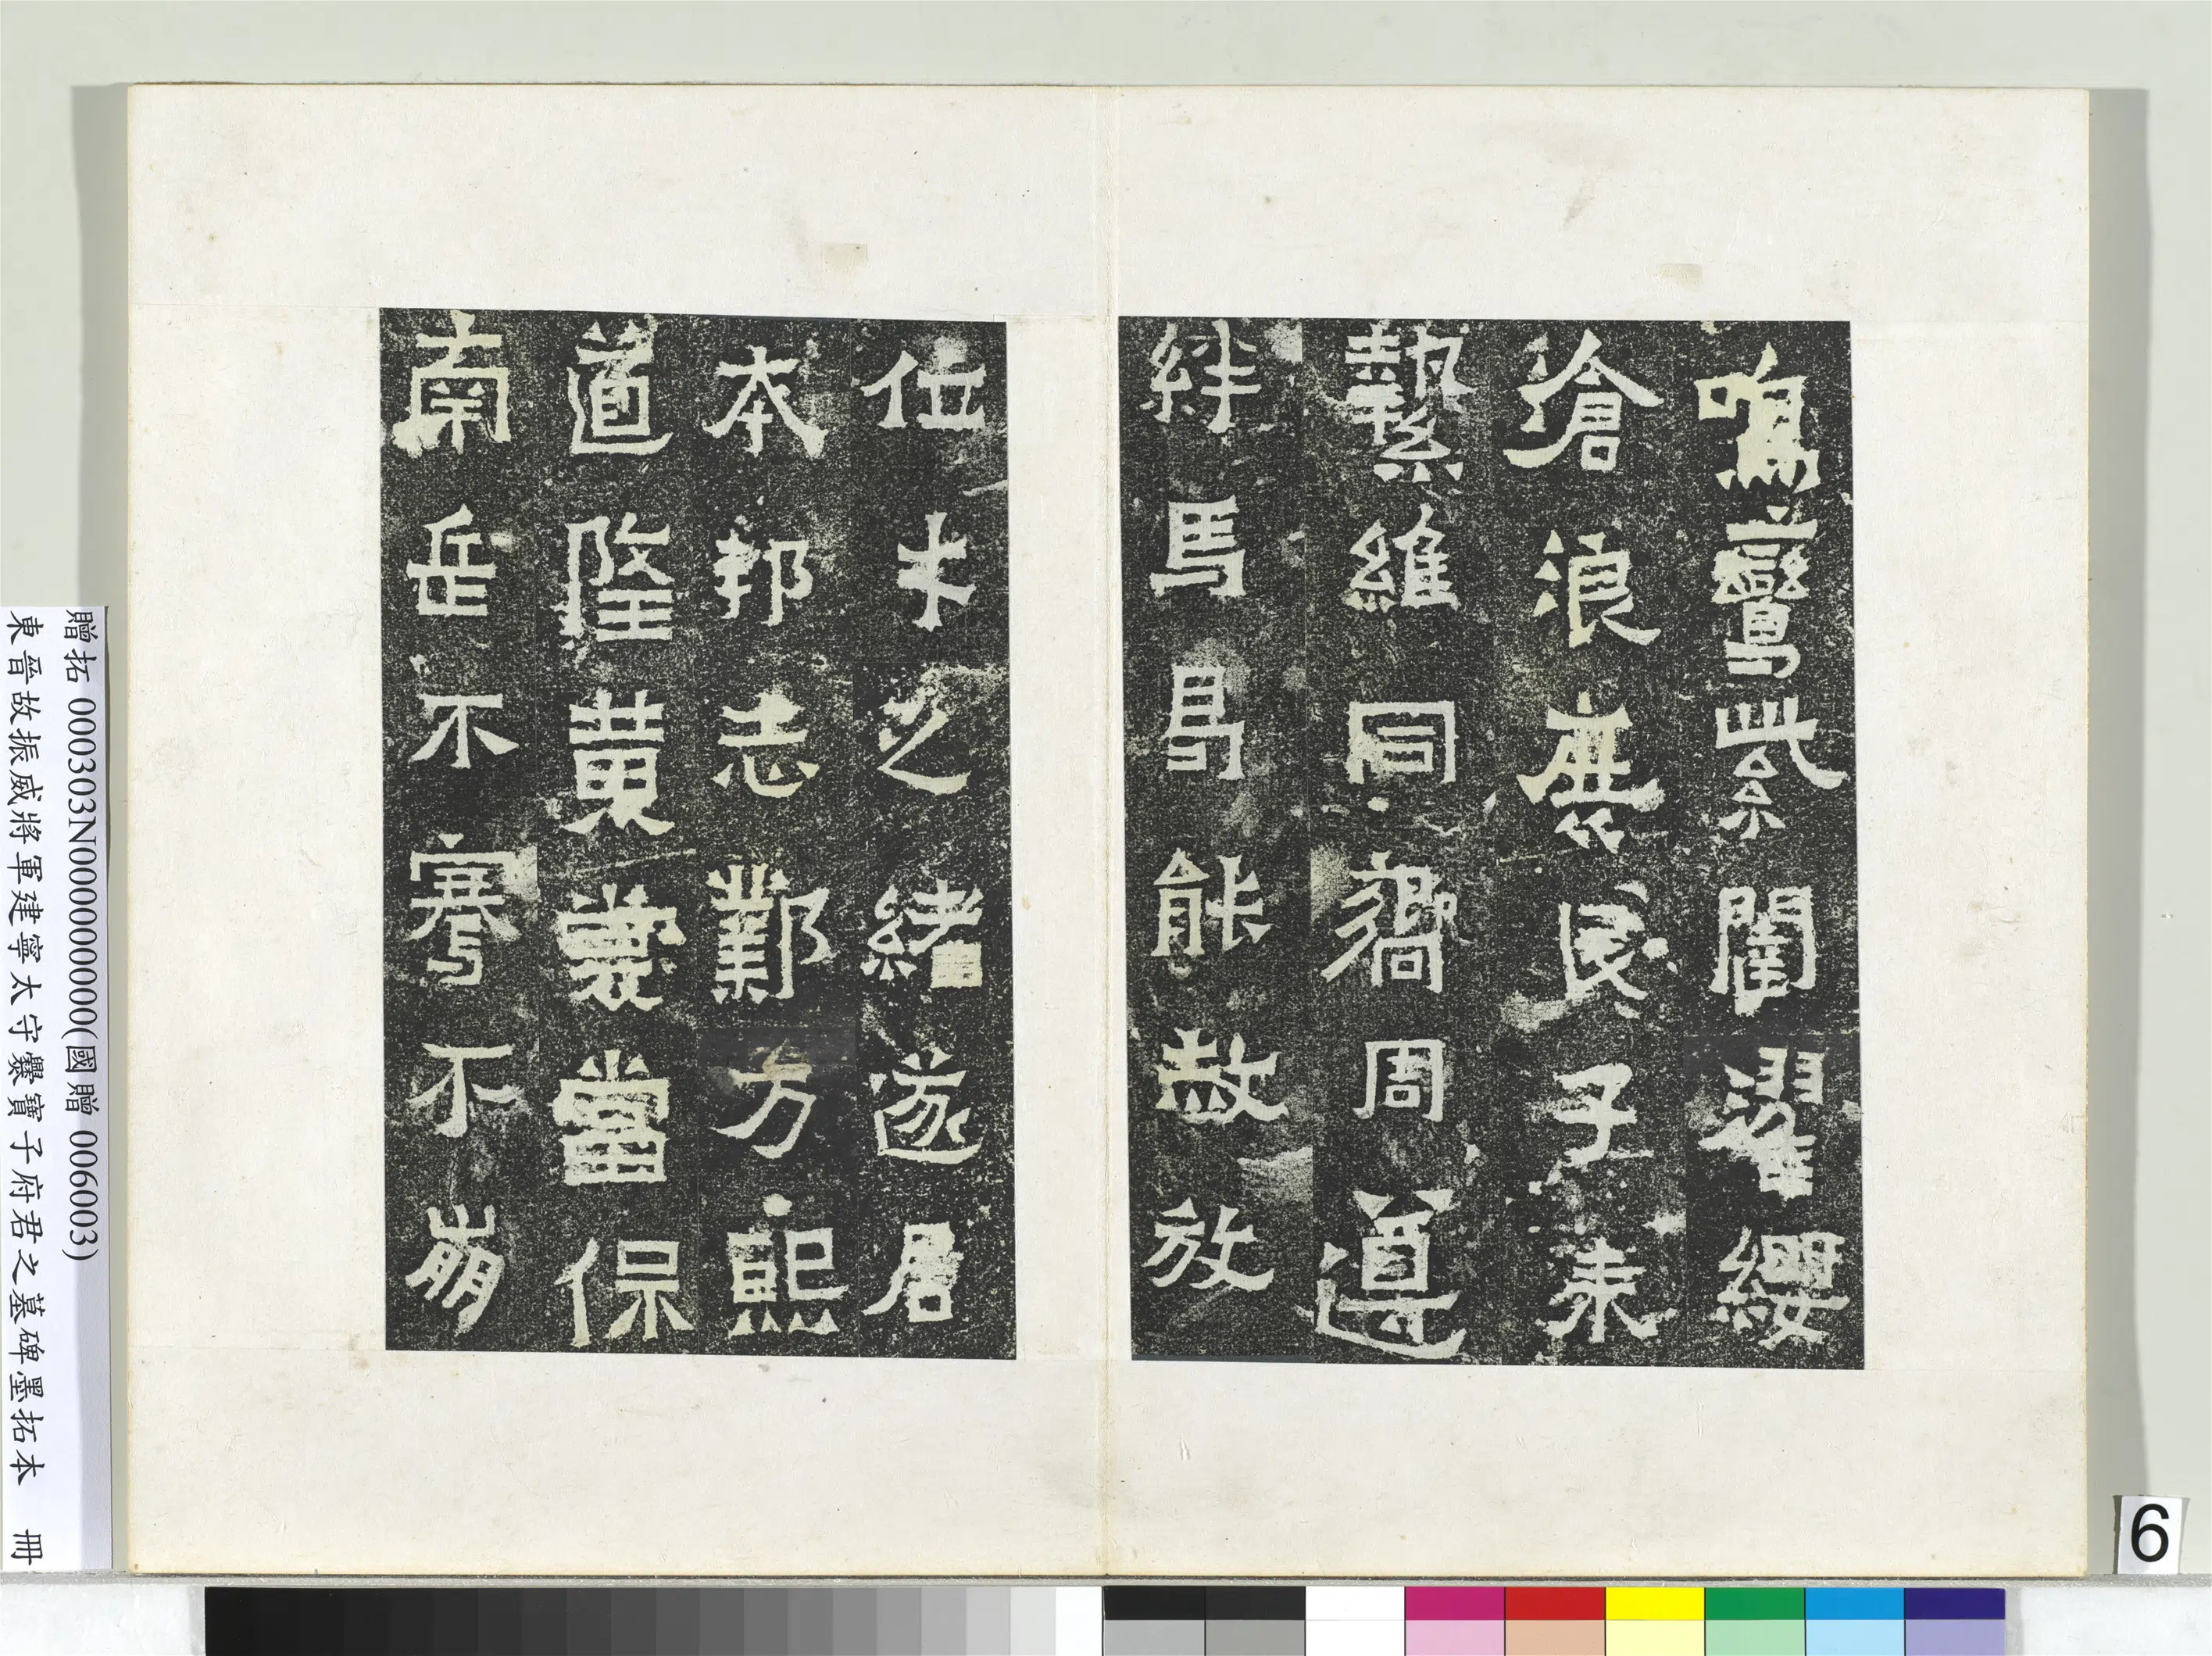 鳴鸞紫闈濯纓
滄浪庶民子來
縶維同嚮周遵
絆馬曷能赦放
位才之緒遂居
本邦志鄴方熙
道隆黃裳當保
南岳不騫不崩
贈拓 000303N000000000(國贈 006003)
東晉故振威將軍建寧太守爨寶子府君之墓碑墨拓本 冊
6